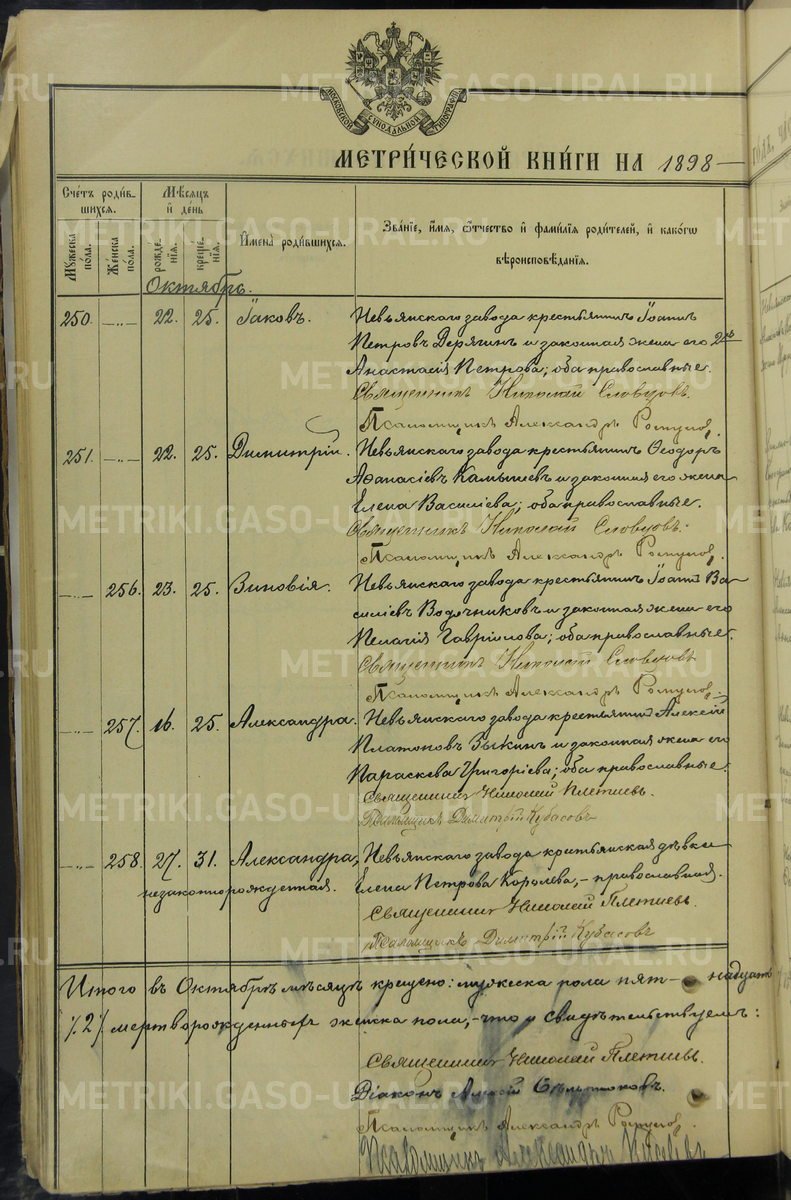 МОСКОВСКОЙ СѴНОДАЛЬНОЙ ТИПОГРАФІИ
МЕТРИ́ЧЕСКОЙ КНИ́ГИ НА 1898
Сче́тъ роди́в-
шихся.
Мѣ́сяцъ
и де́нь
Му́жеска по́ла.
Же́нска по́ла.
рожде́-нія.
креще́-нія.
И҆мена̀ роди́вшихся.
Зва́ніе, и҆́мя, ѻ҆́тчество и҆ фами́лія роди́телей, и҆ како́гѡ
вѣроисповѣ́данія.
Октябрь.
250. —„— 22. 25. Іаковъ. Невьянскаго завода крестьянинъ Іоаннъ
Петровъ Дерягинъ и законная жена его 2мъ
Анастасія Петрова; оба православные.
Священникъ Николай Словцовъ.
Псаломщикъ Александръ
251. —„— 22. 25. Димитрій. Невьянскаго завода крестьянинъ Ѳеодоръ
Аѳанасіевъ Камышевъ и законная его жена
Елена Василіева; оба православные.
Священникъ Николай Словцовъ.
Псаломщикъ Александръ
—„— 256. 23. 25. Зиновія. Невьянскаго завода крестьянинъ Іоаннъ Ва-
силіевъ Водочниковъ и законная жена его
Пелагія Гавріилова; оба православные.
Священникъ Николай Словцовъ
Псаломщикъ Александръ
—„— 257. 16. 25. Александра. Невьянскаго завода крестьянинъ Алексій
Платоновъ Зыкинъ и законная жена его
Параскева Григоріева; оба православные.
Священникъ Николай Плетневъ.
Псаломщикъ Димитрій Кубасовъ
—„— 258. 27. 31. Александра, Невьянскаго завода крестьянская дѣвка
незаконнорожденная. Елена Петрова Королева, – православная.
Священникъ Николай Плетневъ.
Псаломщикъ Димитрій Кубасовъ
Итого въ Октябрѣ мѣсяцѣ крещено: мужеска пола пят- надцать
/2/ мертворожденныхъ женска пола, – что и свидѣтельствуемъ:
Священникъ Николай Плетневъ.
Діаконъ
Псаломщикъ Александръ
Псаломщикъ Александръ
METRIKI.GASO-URAL.RU